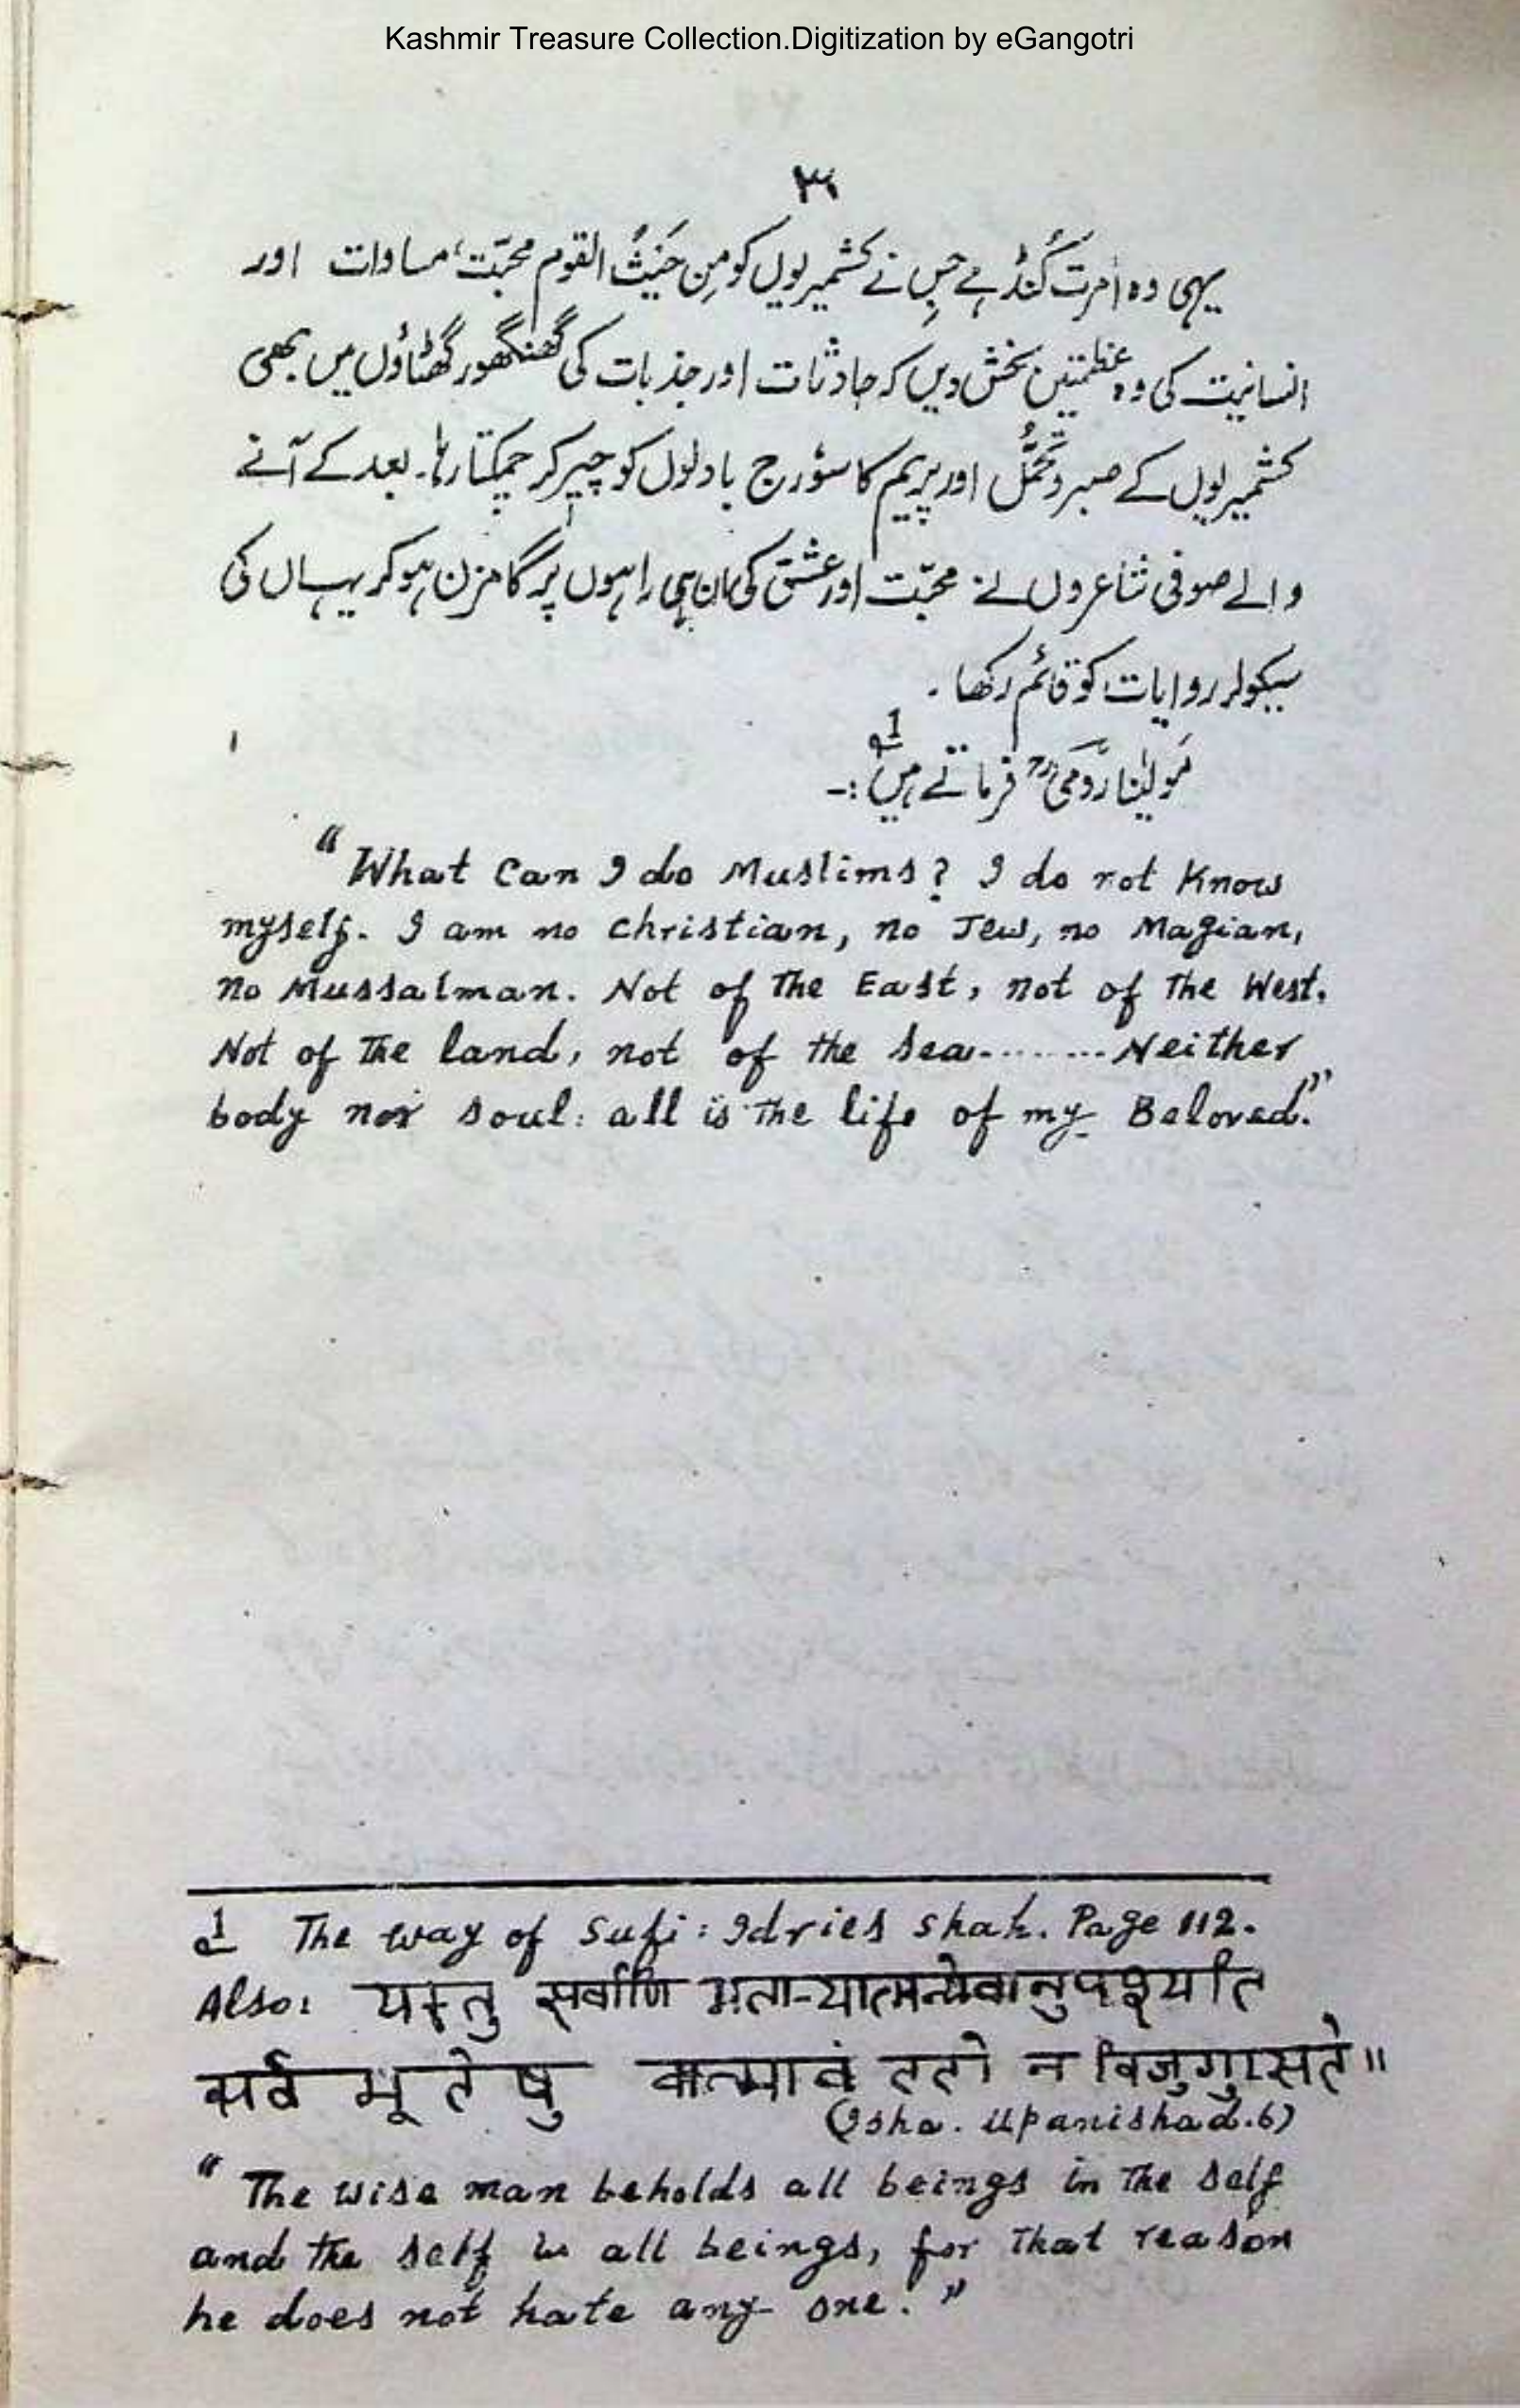 Kashmir Treasure Collection.Digitization by eGangotri
۳۱
یہی وہ اَمرت کُنڈ ہے جِس نے کشمیریوں کو مِن حَیثُ القوم محبّت، مساوات اور
انسانیت کی وہ عظمتیں بخش دیں کہ حادثات اور جذبات کی گھنگھور گھٹاؤں میں بھی
کشمیریوں کے صبر و تحمُّل اور پریم کا سوٗرج بادلوں کو چیر کر چمکتا رہا۔ بعد کے آنے
والے صوفی شاعروں نے محبّت اور عشق کی ان ہی راہوں پر گامزن ہو کر یہاں کی
سیکولر روایات کو قائم رکھا ۔
مَولیٰنا رُومی رح فرماتے ہیں 1 :-
"What Can I do Muslims? I do not Know
myself. I am no christian, no Jew, no Magian,
no Mussalman. Not of The East, not of The West.
Not of The land, not of the sea........Neither
body nor soul: all is The life of my Beloved."
1 The way of Sufi: Idries shah. Page 112.
Also: यस्तु सर्वाणि भूतान्यात्मन्येवानुपश्यति
सर्व भूतेषु चात्मानं ततो न विजुगुप्सते॥
(Isha. Upanishad.6)
"The wise man beholds all beings in The self
and the self in all beings, for That reason
he does not hate any one."